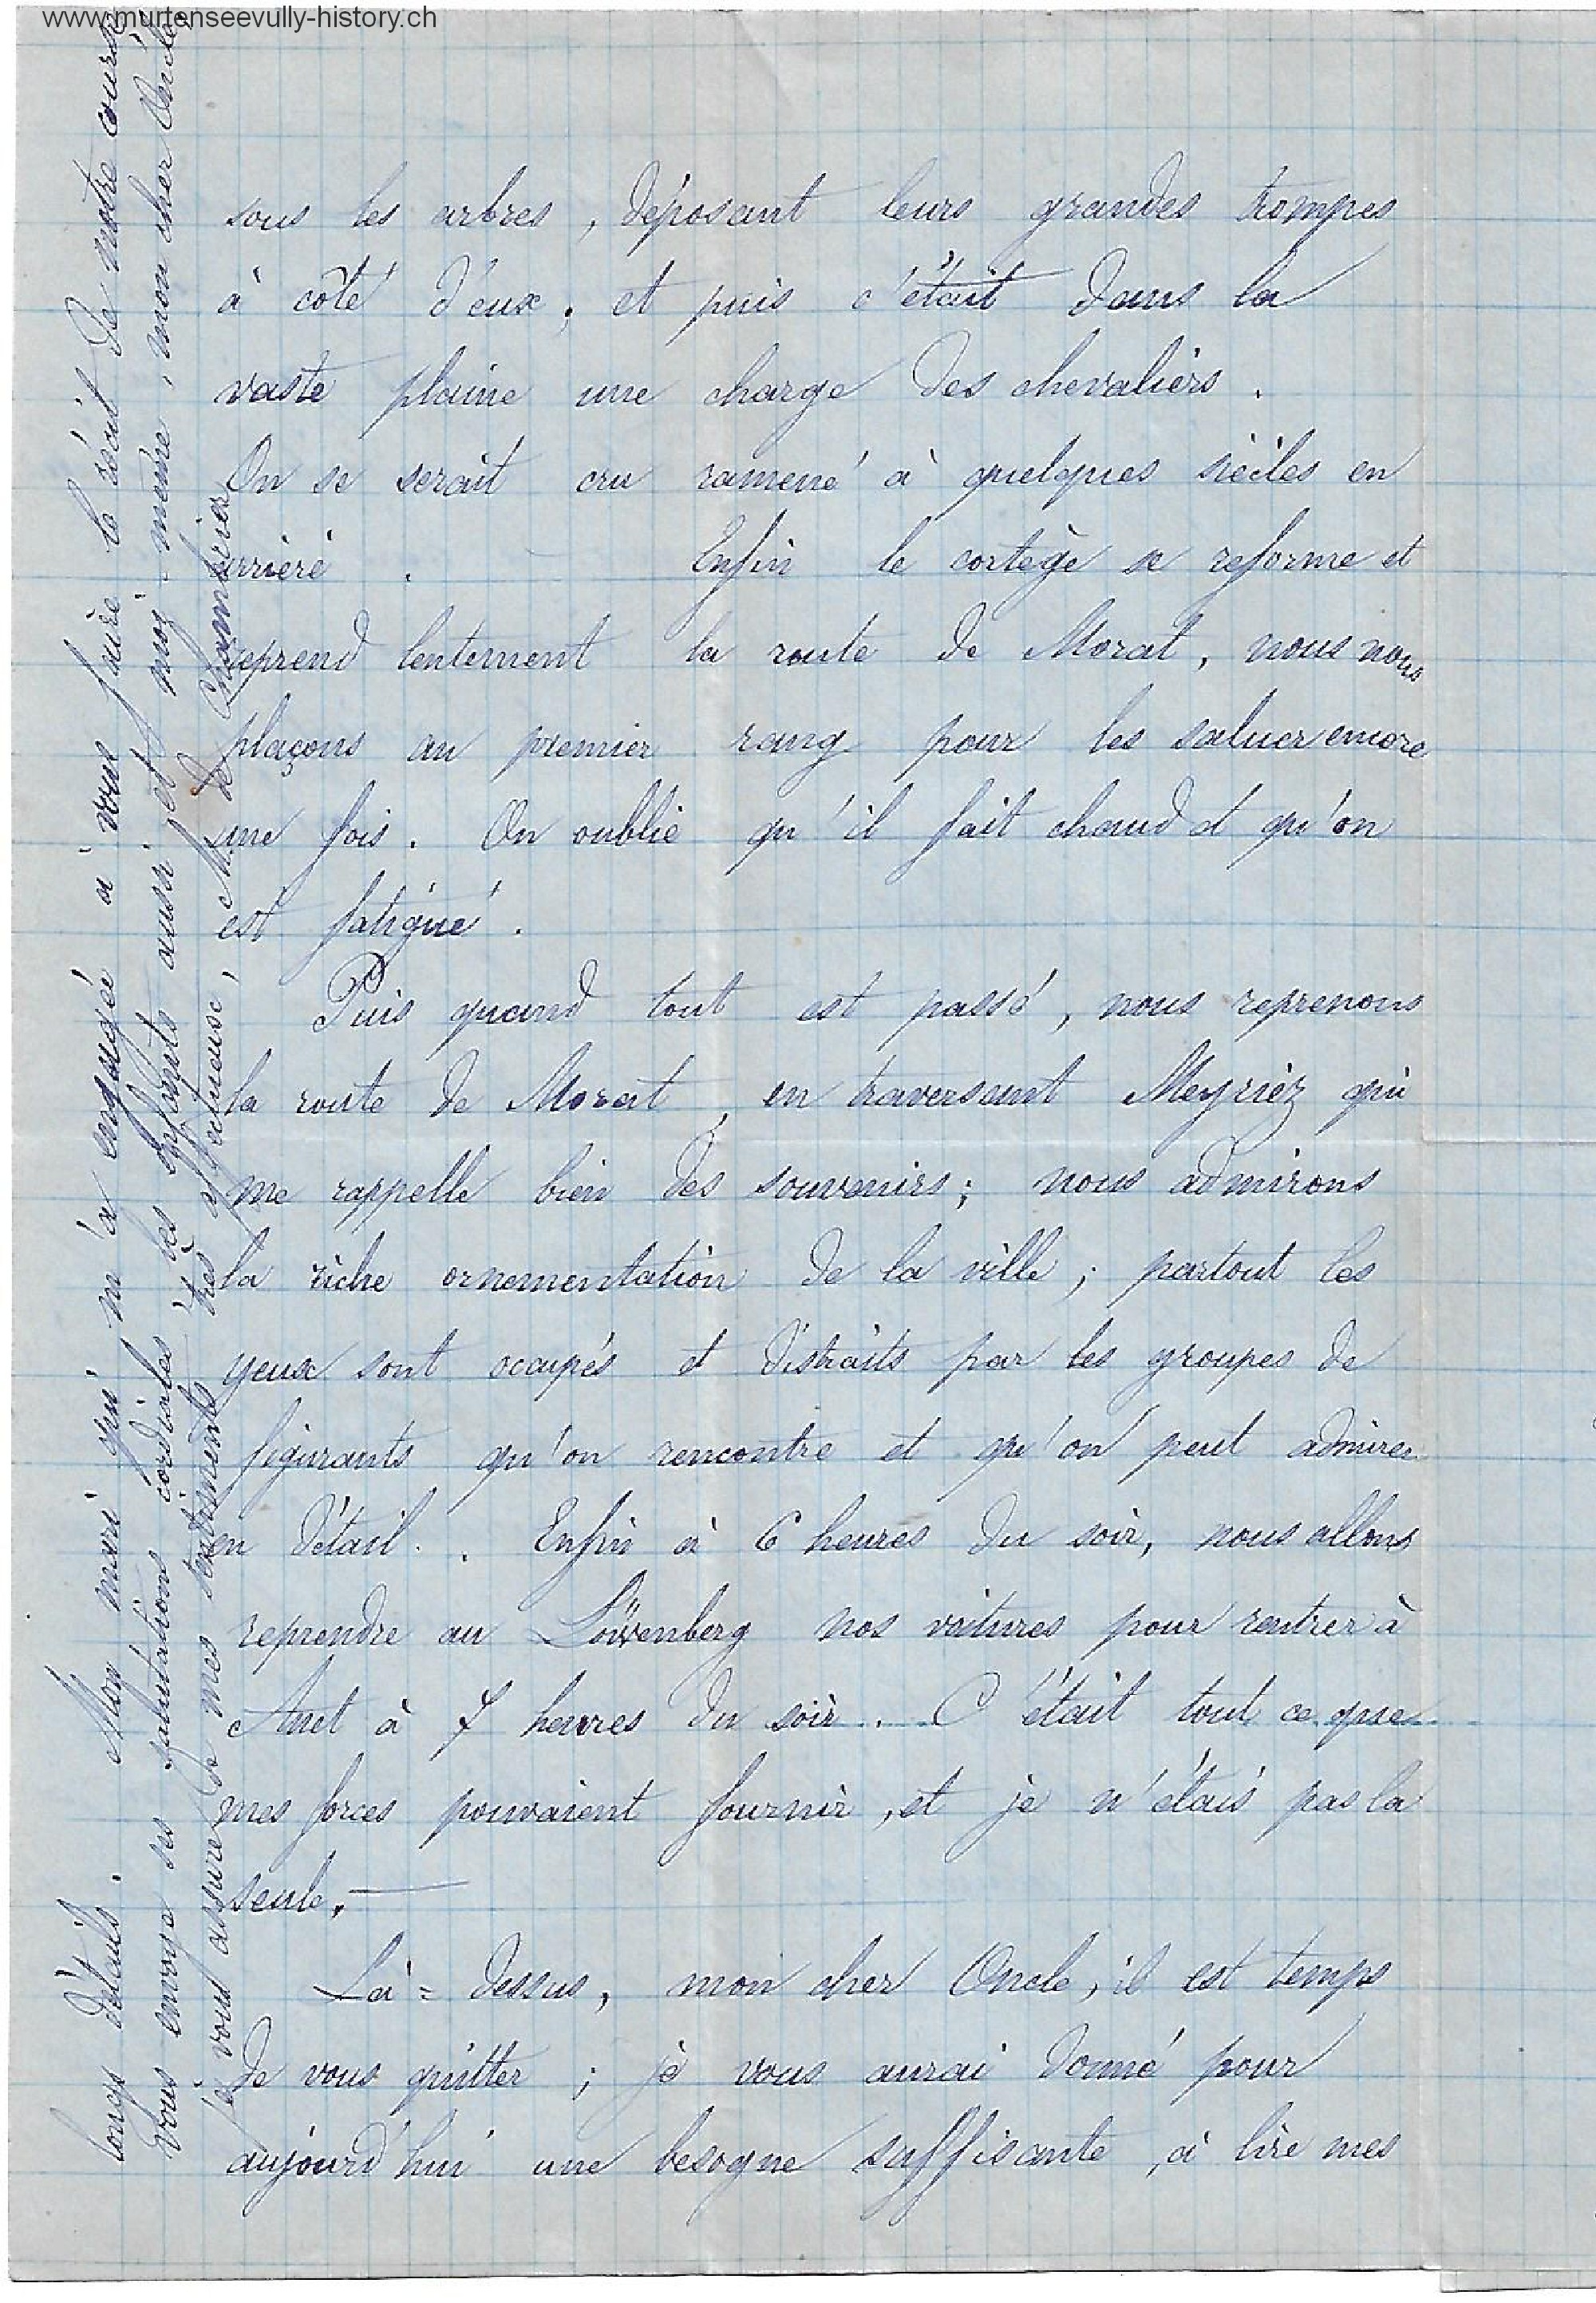 www.murtenseevully-history.ch
sous les arbres, déposant leurs grandes trompes
à côté d'eux, et puis c'était dans la
vaste plaine une charge des chevaliers.
On se serait cru ramené à quelques siècles en
arrière. Enfin le cortège se reforme et
reprend lentement la route de Morat, nous nous
plaçons au premier rang pour les saluer encore
une fois. On oublie qu'il fait chaud et qu'on
est fatigué.
Puis quand tout est passé, nous reprenons
la route de Morat, en traversant Meyriez qui
me rappelle bien des souvenirs; nous admirons
la riche ornementation de la ville; partout les
yeux sont occupés et distraits par les groupes de
figurants qu'on rencontre et qu'on peut admirer
en détail. Enfin à 6 heures du soir, nous allons
reprendre au Löwenberg nos voitures pour rentrer à
Anet à 7 heures du soir. C'était tout ce que
mes forces pouvaient fournir, et je n'étais pas la
seule.—
Là=dessus, mon cher Oncle, il est temps
de vous quitter; je vous aurai donné pour
aujourd'hui une besogne suffisante, à lire mes
longs détails. Mon mari qui m'a engagée à vous faire le récit de notre course
vous envoye ses salutations cordiales, les enfants aussi et moi-même, mon cher Oncle
je vous assure de mes sentiments très affectueux, M. de Chambrier